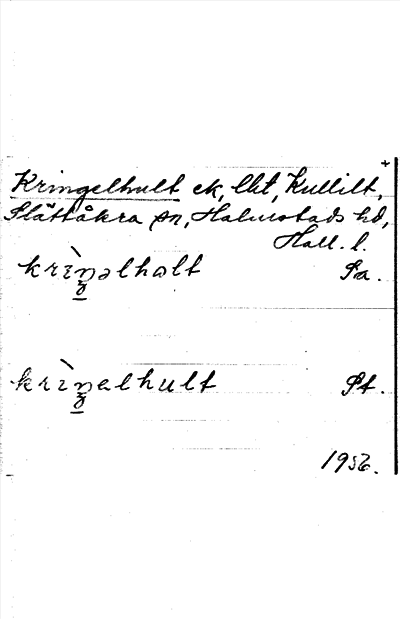 +
Kringelhult ek, lht, Kullilt,
Slättåkra sn, Halmstads hd,
Hall. l.
krìŋəlhəlt Sa.
krìŋelhult St.
1956.